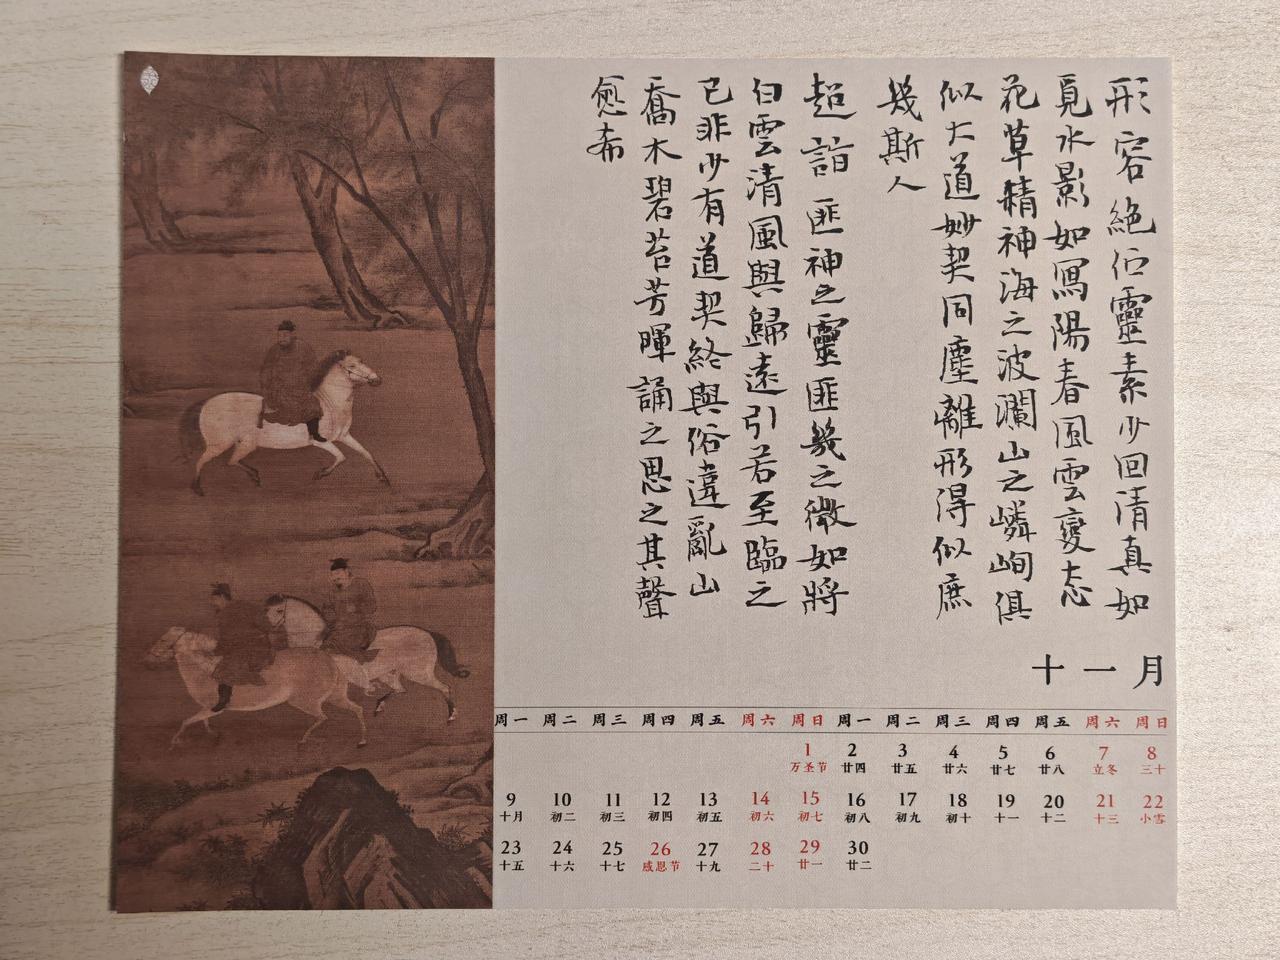 形容 絕佇靈素少回清真如
覓水影如寫陽春風雲變態
花草精神海之波瀾山之嶙峋俱
似大道妙契同塵離形得似庶
幾斯人
超詣 匪神之靈匪幾之微如將
白雲清風與歸遠引若至臨之
已非少有道契終與俗違亂山
喬木碧苔芳暉誦之思之其聲
愈希
十一月
周一 周二 周三 周四 周五 周六 周日 周一 周二 周三 周四 周五 周六 周日
1 2 3 4 5 6 7 8
万圣节 廿四 廿五 廿六 廿七 廿八 立冬 三十
9 10 11 12 13 14 15 16 17 18 19 20 21 22
十月 初二 初三 初四 初五 初六 初七 初八 初九 初十 十一 十二 十三 小雪
23 24 25 26 27 28 29 30
十五 十六 十七 感恩节 十九 二十 廿一 廿二